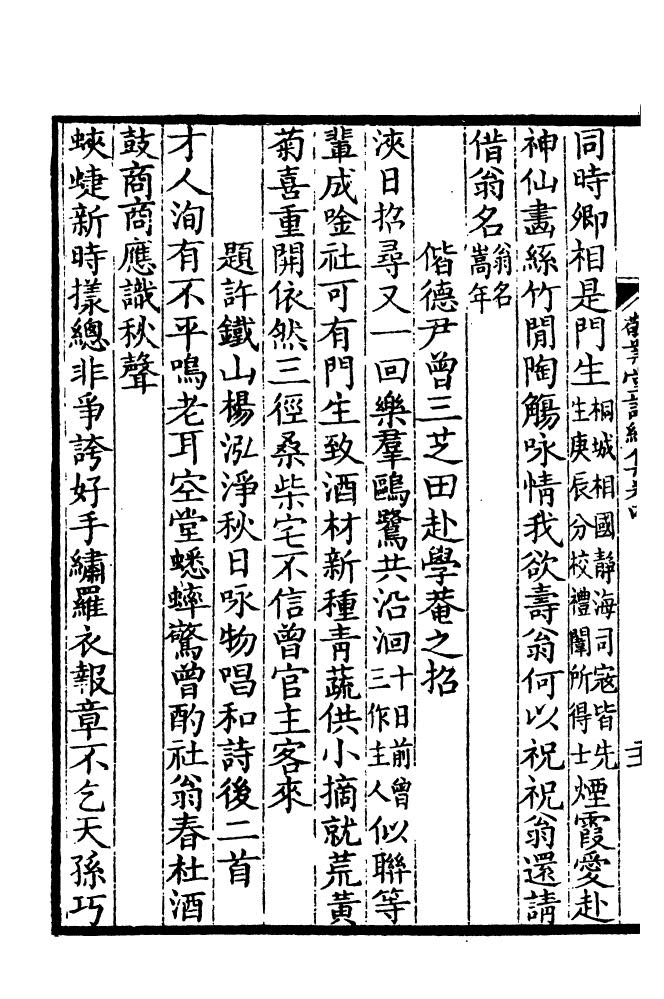 同時卿相是門生桐城相國静海司寇皆先生庚辰分校禮闈所得士煙霞愛赴
神仙畵絲竹閒陶觴咏情我欲壽翁何以祝祝翁還請
借翁名翁名嵩年
偕德尹曾三芝田赴學菴之招
浹日招尋又一回樂羣鷗鷺共沿洄十日前曾三作主人似聯等
輩成唫社可有門生致酒材新種青蔬供小摘就荒黃
菊喜重開依然三徑桑柴宅不信曾官主客來
題許鐵山楊泓淨秋日咏物唱和詩後二首
才人洵有不平鳴老耳空堂蟋蟀驚曾酌社翁春社酒
鼓商商應識秋聲
蛺蜨新時樣總非爭誇好手繡羅衣報章不乞天孫巧